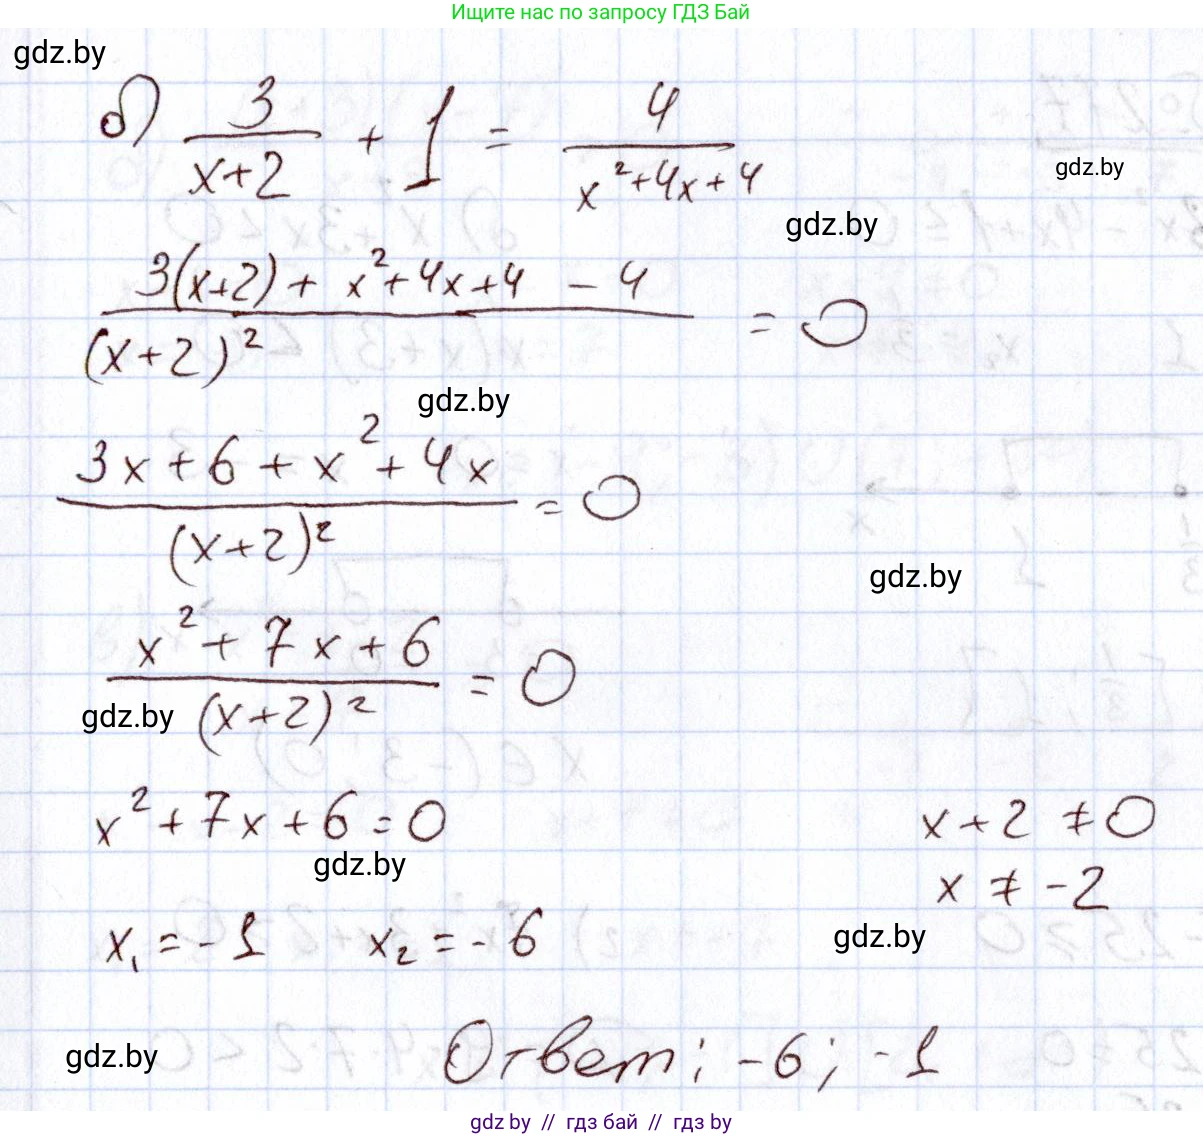 Ищите нас по запросу ГДЗ Бай
gdz.by
б) 3/(x+2) + 1 = 4/(x²+4x+4)
gdz.by
gdz.by
(3(x+2) + x²+4x+4 - 4)/(x+2)² = 0
gdz.by
(3x + 6 + x² + 4x)/(x+2)² = 0
gdz.by
(x² + 7x + 6)/(x+2)² = 0
gdz.by
x² + 7x + 6 = 0 x + 2 ≠ 0
gdz.by
x ≠ -2
x₁ = -1 x₂ = -6
gdz.by
Ответ: -6; -1
gdz.by
gdz.by // гдз бай // гдз by